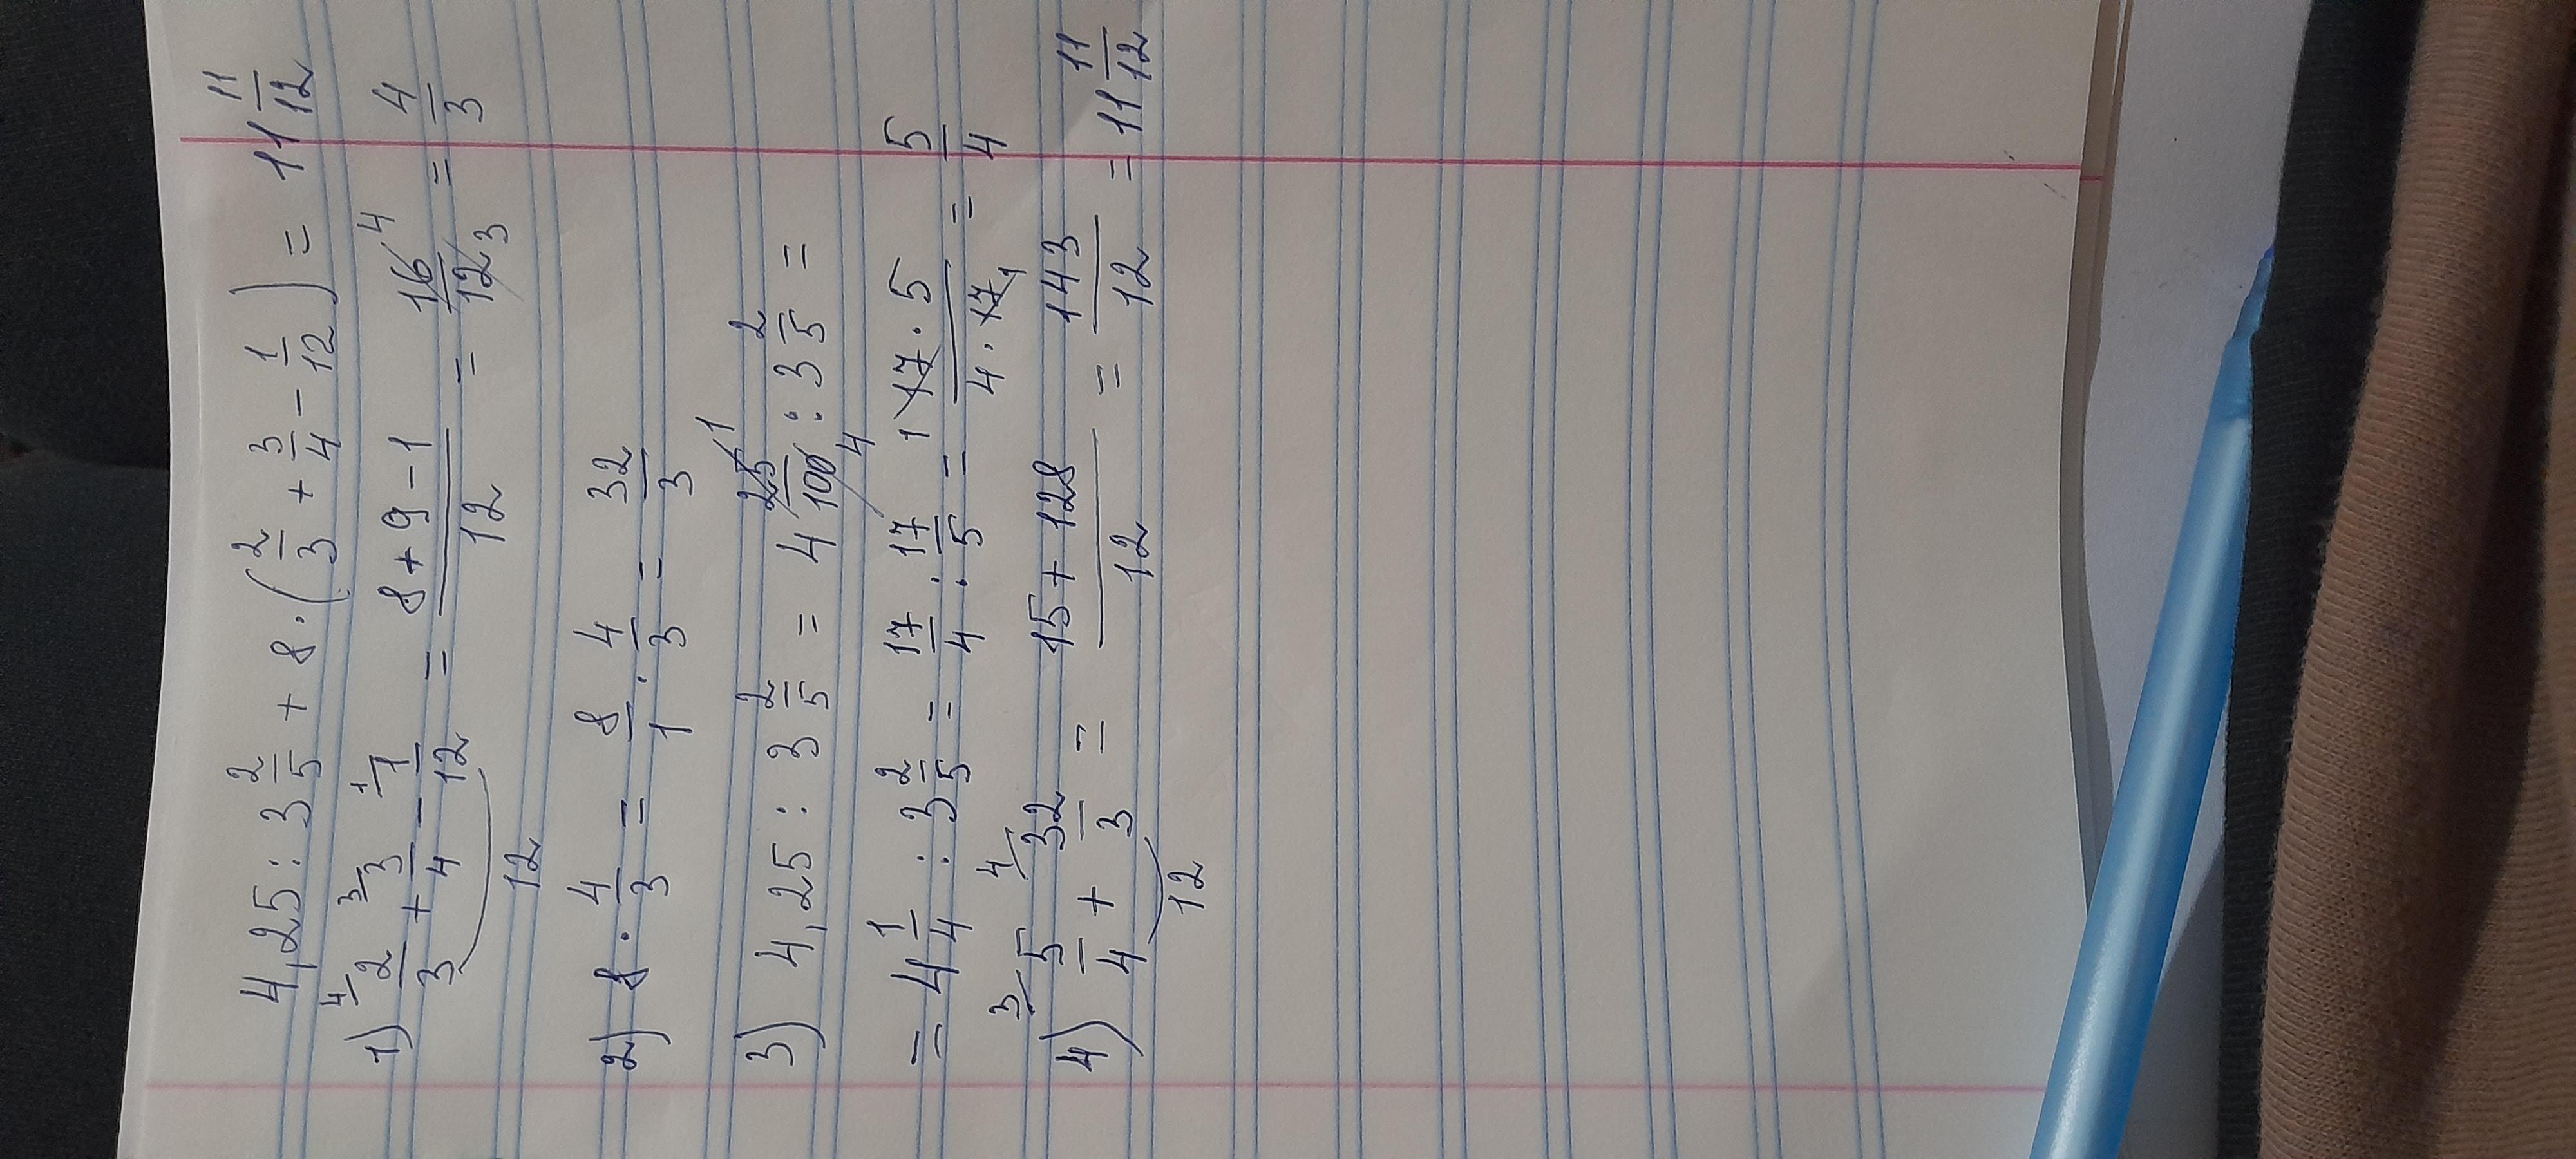 4,25 : 3 2/5 + 8 · (2/3 + 3/4 − 1/12) = 11 11/12
1) 4/ 2/3 + 3/ 3/4 − 1/ 1/12 = (8 + 9 − 1)/12 = 16/12 4 3 = 4/3
12
2) 8 · 4/3 = 8/1 · 4/3 = 32/3
3) 4,25 : 3 2/5 = 4 25/100 1 4 : 3 2/5 =
= 4 1/4 : 3 2/5 = 17/4 : 17/5 = 1 (17 · 5)/(4 · 17) 1 = 5/4
4) 3/ 5/4 + 4/ 32/3 = (15 + 128)/12 = 143/12 = 11 11/12
12